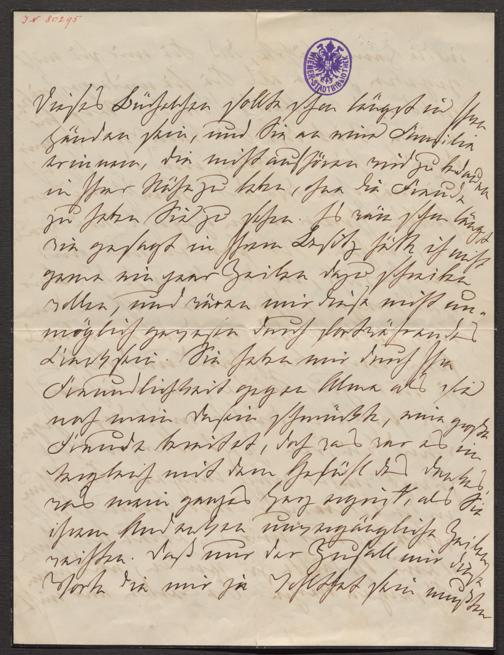 I N 80295
WIENER STADTBIBLIOTHEK
Dieses Büchelchen sollte schon längst in Ihren
Händen sein, und Sie an eine Familie
erinnern, die nicht aufhören wird zu bedauern
in Ihrer Nähe zu leben, ohne die Freude
zu haben Sie zu sehen. Es wäre schon längst
wie gesagt in Ihrem Besitz hätte ich nicht
gerne ein paar Zeilen dazu schreiben
wollen, und wären mir diese nicht un-
möglich gewesen durch fortwährendes
Leidend sein. Sie haben mir durch Ihre
Freundlichkeit gegen Alma als sie
noch mein Dasein schmückte, eine große
Freude bereitet, doch was war es im
Vergleich mit dem Gefühl des Dankes,
was mein ganzes Herz ergriff, als Sie
ihrem Andenken unvergängliche Zeilen
weihten. Daß nur der Zufall mir diese
Worte die mir ja Wohlthat sein mußten